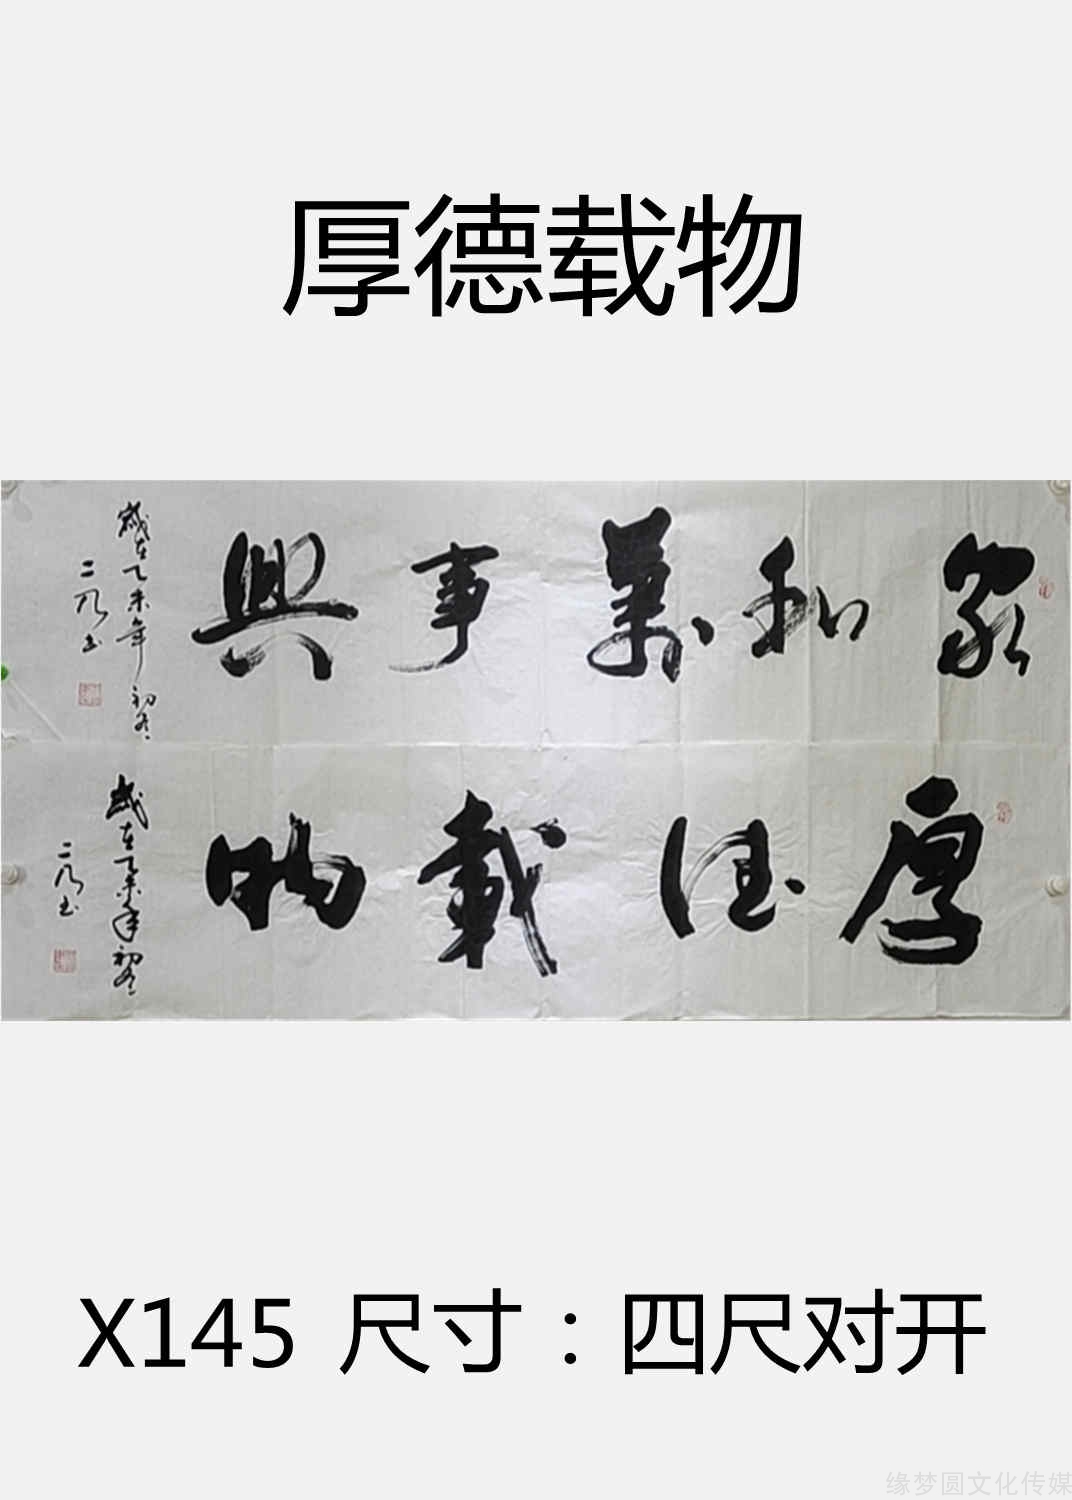 厚德载物
家和萬事興
歲在乙未年初冬
二凡书
厚德載物
歲在乙未年初冬
二凡书
X145 尺寸：四尺对开
缘梦圆文化传媒